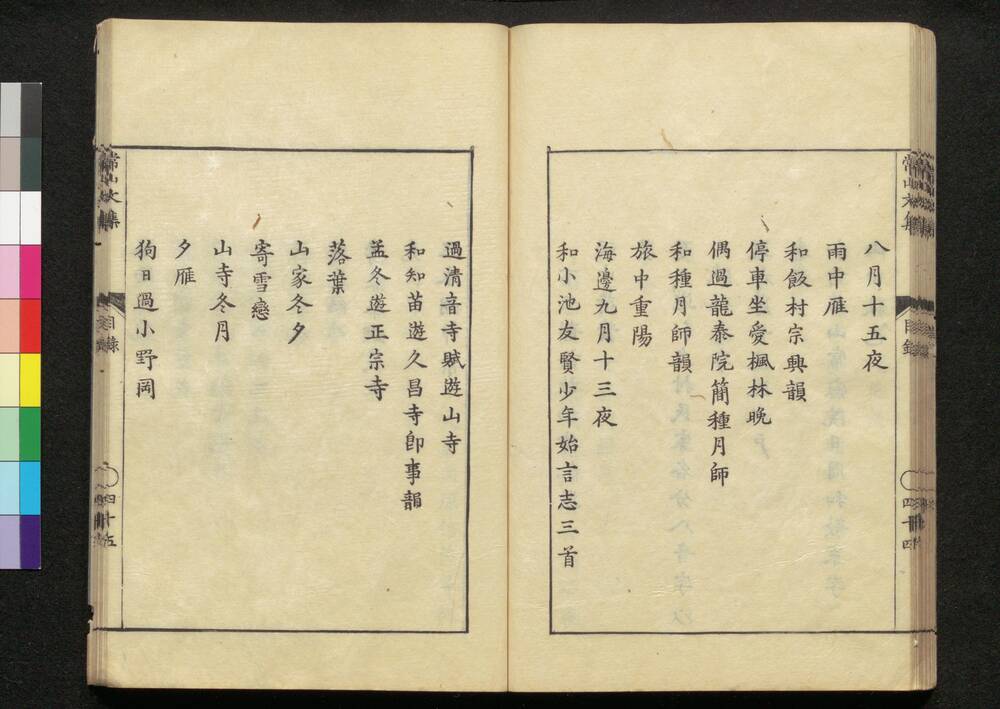 八月十五夜
雨中雁
和飯村宗興韻
停車坐愛楓林晚
偶過龍泰院簡種月師
和種月師韻
旅中重陽
海邊九月十三夜
和小池友賢少年始言志三首
過清音寺賦遊山寺
和知苗遊久昌寺卽事韻
孟冬遊正宗寺
落葉
山家冬夕
寄雪戀
山寺冬月
夕雁
狗日過小野岡
常山文集
目錄
四十四
常山文集
目錄
四十五